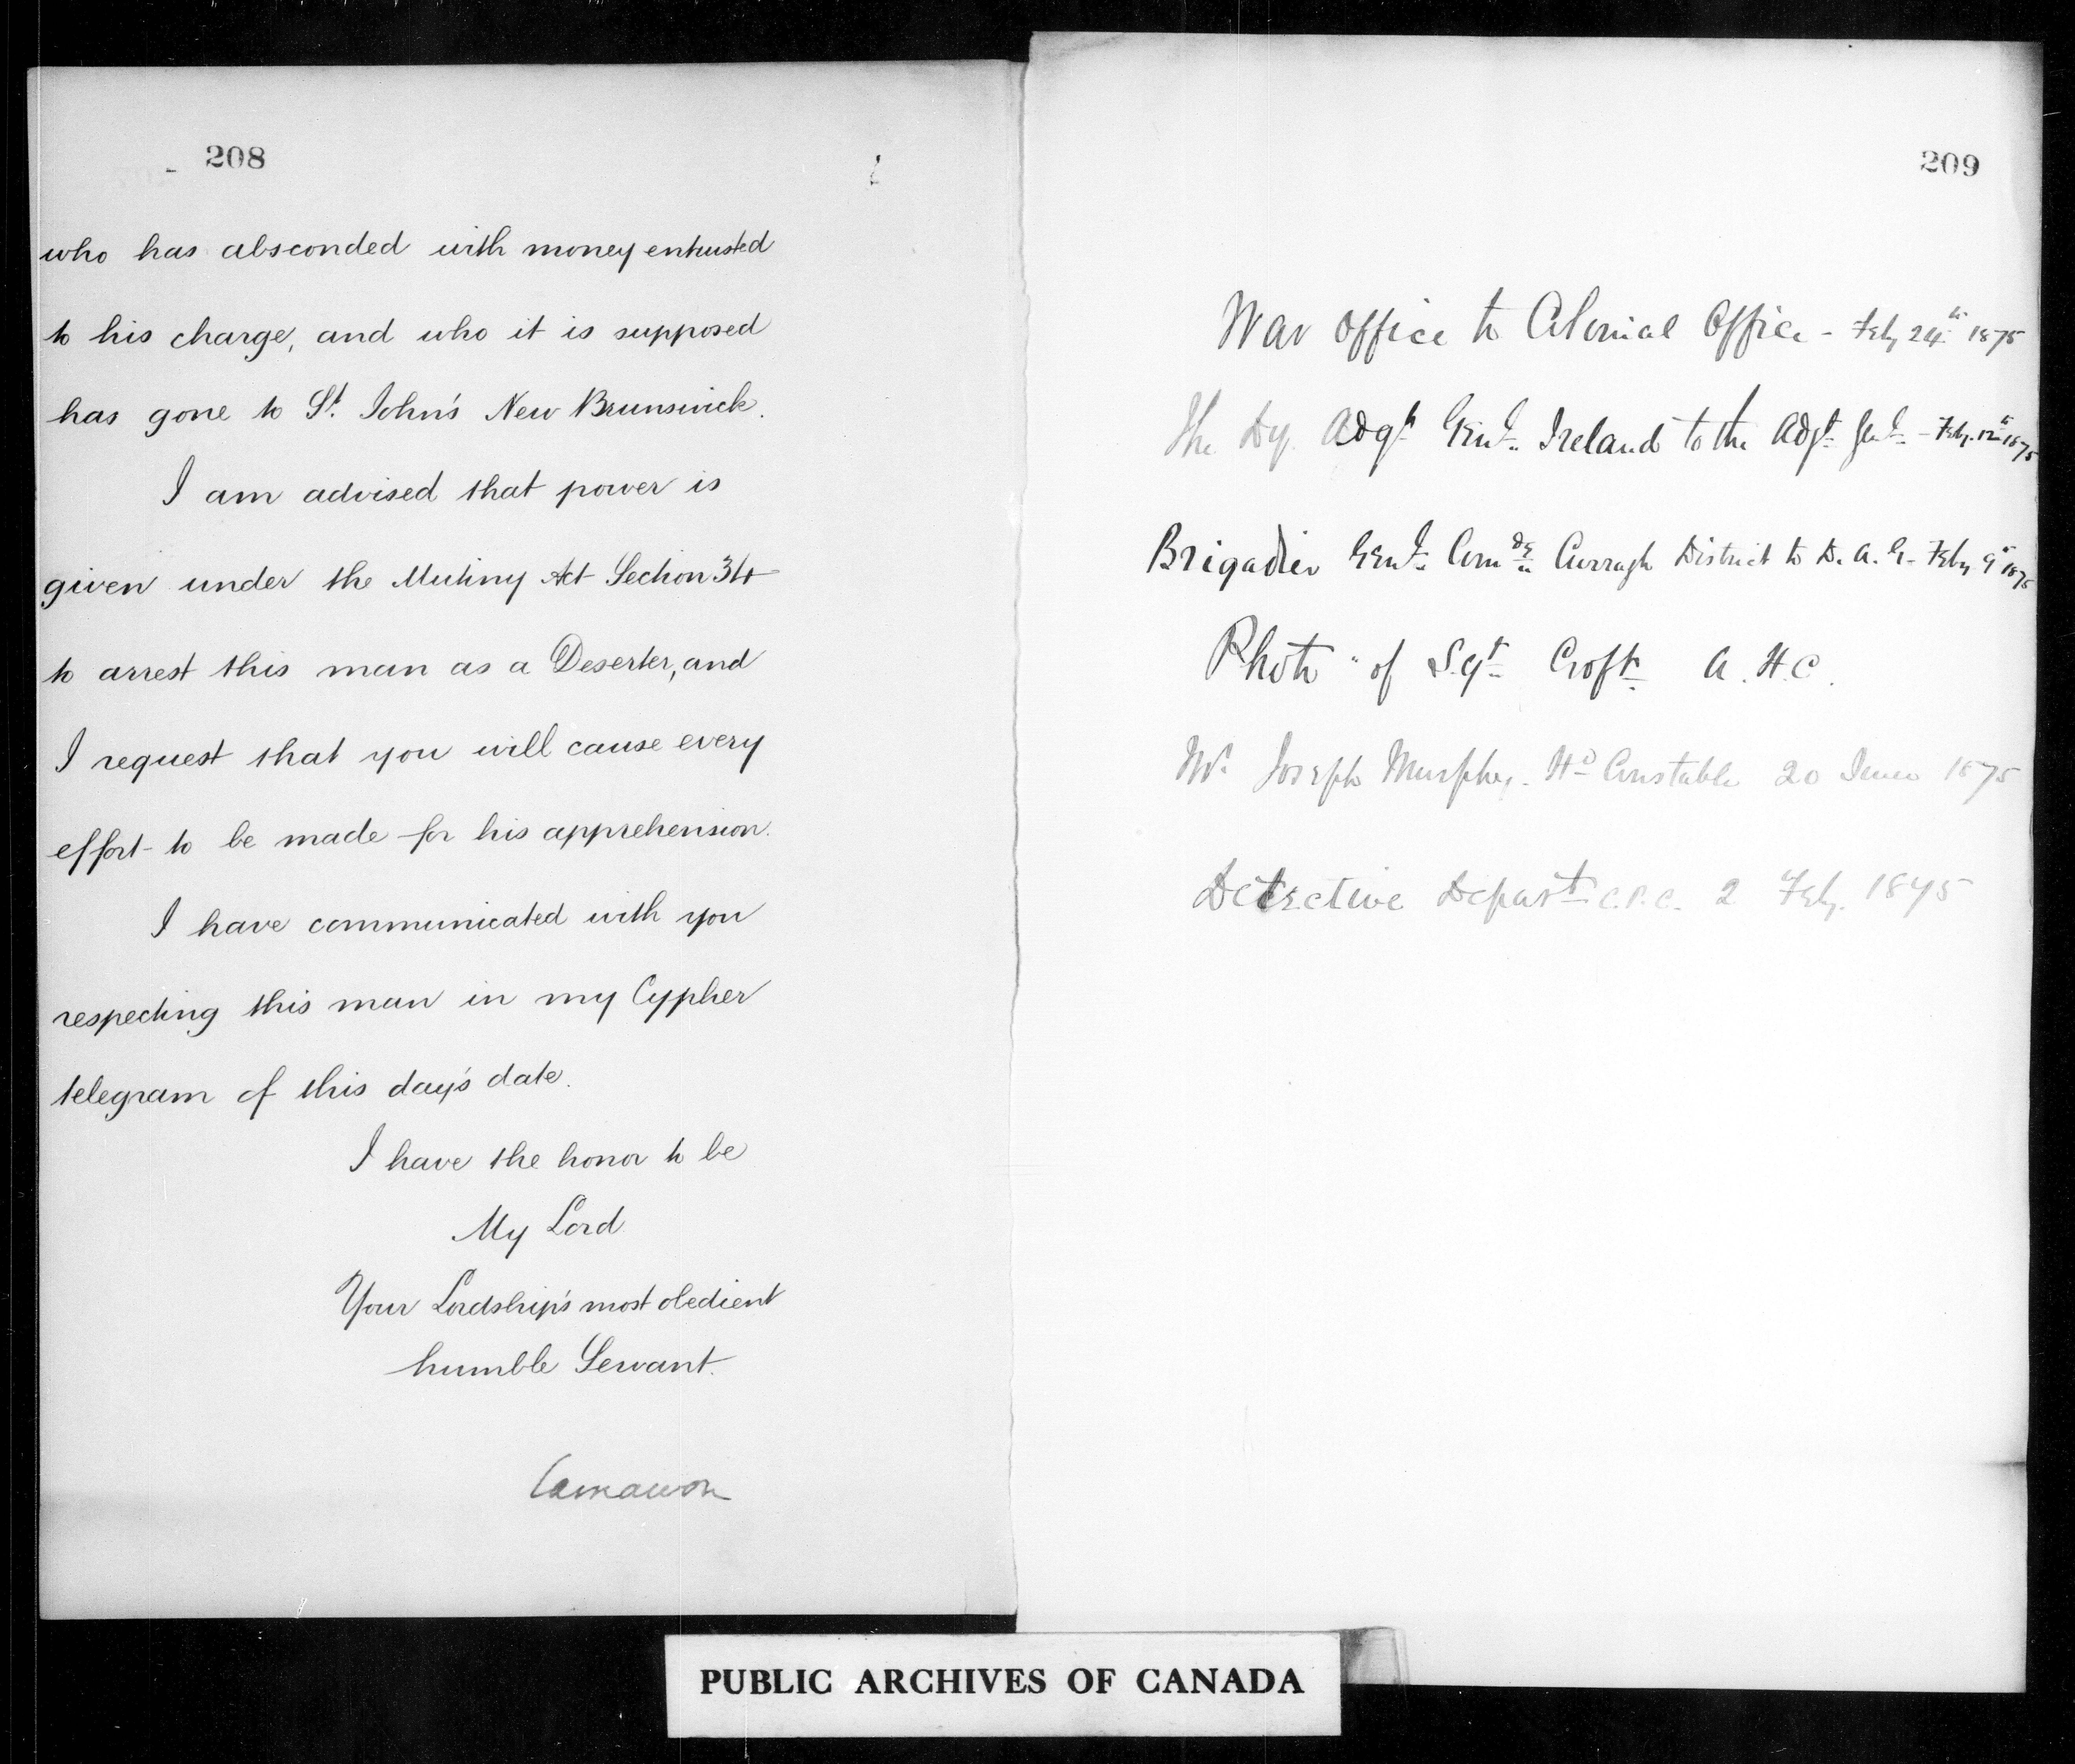 208
who has absconded with money entrusted
to his charge, and who it is supposed
has gone to St. John's New Brunswick.
I am advised that power is
given under the Mutiny Act Section 34
to arrest this man as a Deserter, and
I request that you will cause every
effort to be made for his apprehension.
I have communicated with you
respecting this man in my Cypher
telegram of this day's date.
I have the honor to be
My Lord
Your Lordship's most obedient
humble Servant.
Carnarvon
209
War Office to Colonial Office - Feby 24th 1875
The Dy. Adgt Genl. Ireland to the Adjt Genl - Feby. 12th 1875
Brigadier Genl. Comdg Curragh District to D. A. G - Feby 9th 1875
Photo of Sgt Croft A. H. C.
Mr. Joseph Murphy. Hd Constable 20 1875
Detective Depart C.P.C. 2 Feby. 1875
PUBLIC ARCHIVES OF CANADA